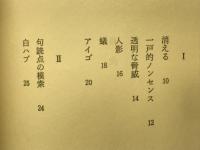 I
消える 10
一戸的ノンセンス 12
透明な脅威 14
人影 16
蟻 18
アイゴ 20
II
句読点の模索 24
白ハブ 25